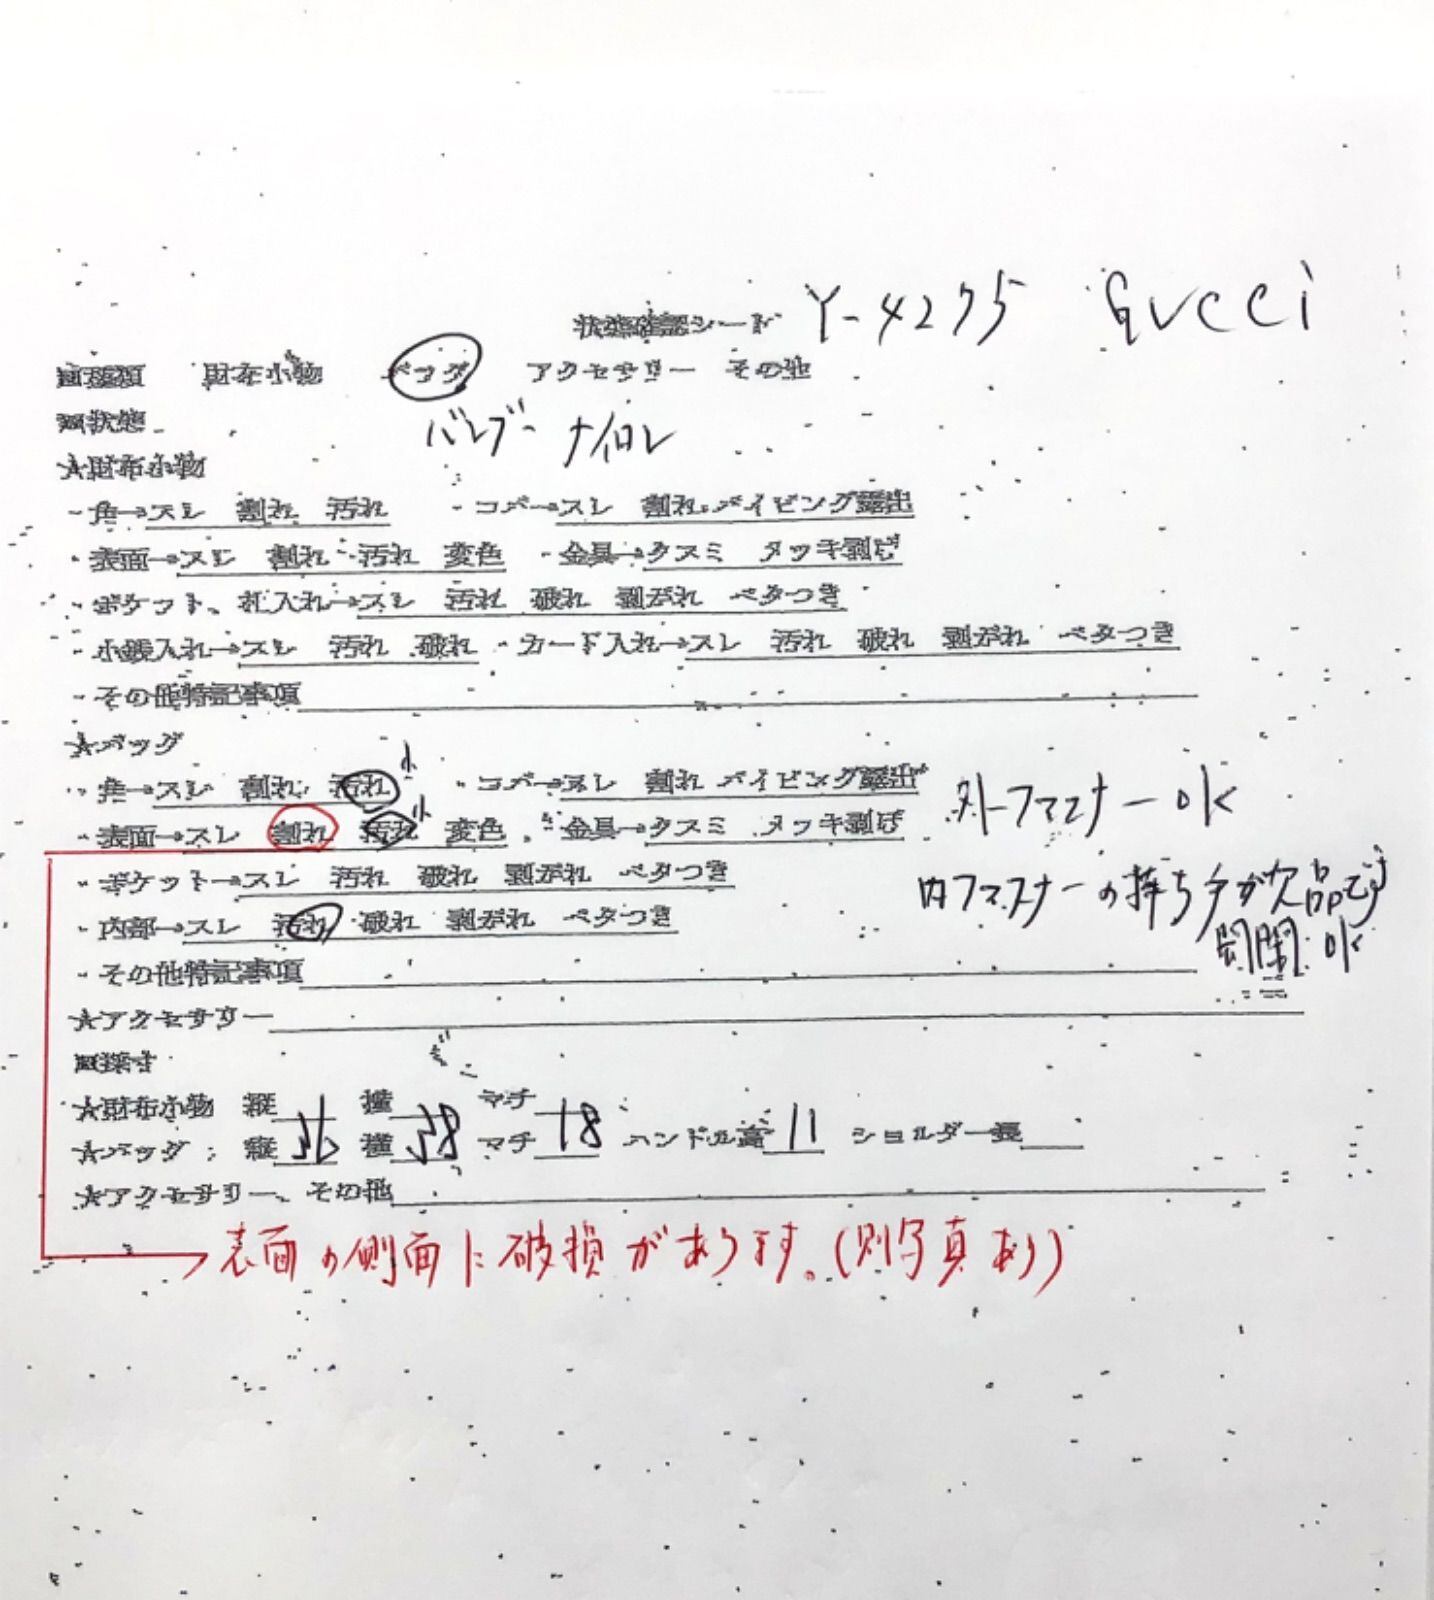 状態確認シート Y-4275 GUCCI
■種類 財布小物 バッグ アクセサリー その他
■状態 バンブー ナイロン
★財布小物
・角→スレ 割れ 汚れ ・コバ→スレ 割れ パイピング露出
・表面→スレ 割れ 汚れ 変色 ・金具→クスミ メッキ剥げ
・ポケット、札入れ→スレ 汚れ 破れ 剥がれ ベタつき
・小銭入れ→スレ 汚れ 破れ ・カード入れ→スレ 汚れ 破れ 剥がれ ベタつき
・その他特記事項
★バッグ
・角→スレ 割れ 汚れ 小 ・コバ→スレ 割れ パイピング露出
外ファスナーOK
・表面→スレ 割れ 汚れ 小 変色 ・金具→クスミ メッキ剥げ
・ポケット→スレ 汚れ 破れ 剥がれ ベタつき
内ファスナーの持ち手が欠品です
・内部→スレ 汚れ 破れ 剥がれ ベタつき
開閉OK
・その他特記事項
★アクセサリー
■採寸
★財布小物 縦 横 マチ
★バッグ 縦36 横38 マチ18 ハンドル高11 ショルダー長
★アクセサリー、その他
表面の側面に破損があります。(別写真あり)